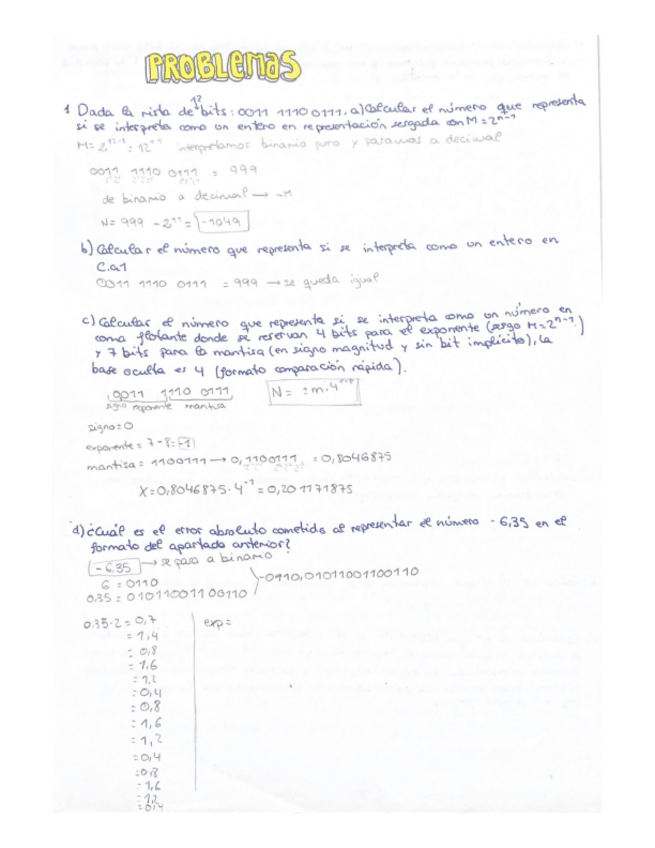 PROBLEMAS
1 Dada la rista de 12 bits: 0011 1110 0111, a) Calcular el número que representa
si se interpreta como un entero en representación sesgada con M=2ⁿ⁻¹
M= 2¹²⁻¹ = 12¹¹ interpretamos binario puro y pasamos a decimal
0011 1110 0111 = 999
de binario a decimal → -M
N= 999 - 2¹¹ = -1049
b) Calcular el número que representa si se interpreta como un entero en
C.a1
0011 1110 0111 = 999 → se queda igual
c) Calcular el número que representa si se interpreta como un número en
coma flotante donde se reservan 4 bits para el exponente (sesgo M=2ⁿ⁻¹)
y 7 bits para la mantisa (en signo magnitud y sin bit implícito), la
base oculta es 4 (formato comparación rápida).
0011 1110 0111 N= ±m·4ᵉˣᵖ
signo exponente mantisa
signo=0
exponente = 7-8= -1
mantisa = 1100111 → 0,1100111 = 0,8046875
X=0,8046875·4⁻¹=0,201171875
d) ¿Cuál es el error absoluto cometido al representar el número -6,35 en el
formato del apartado anterior?
-6,35 → se pasa a binario
6 = 0110
0,35 = 01011001100110
-0110,01011001100110
0,35·2=0,7
=1,4
=0,8
=1,6
=1,2
=0,4
=0,8
=1,6
=1,2
=0,4
=0,8
=1,6
=1,2
=0,4
exp=